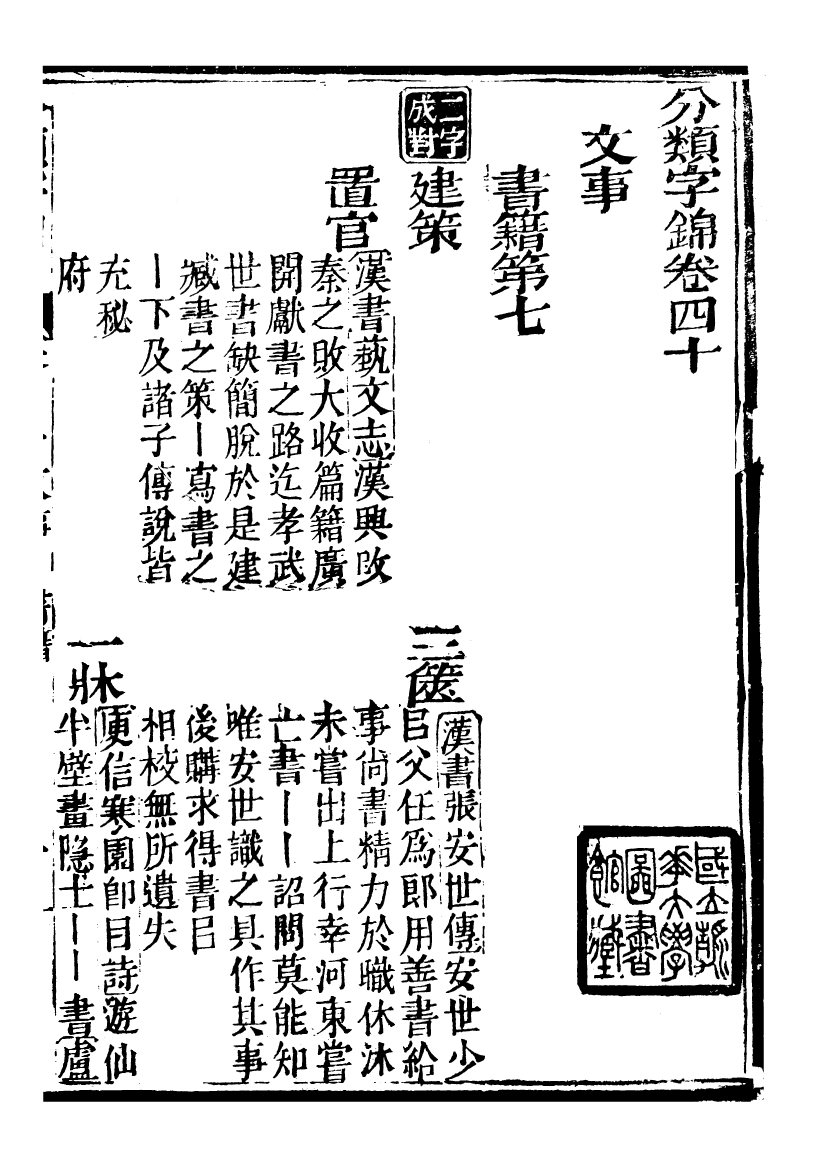 分類字錦卷四十
文事
書籍第七
二字
成對
建策
漢書藝文志漢興改
秦之敗大收篇籍廣
開獻書之路迄孝武
世書缺簡脫於是建
藏書之策丨寫書之
丨下及諸子傳說皆
充秘
府
置官
三篋
漢書張安世傳安世少
㠯父任爲郎用善書給
事尚書精力於職休沐
未嘗出上行幸河東嘗
亡書丨丨詔問莫能知
唯安世識之具作其事
後購求得書㠯
相校無所遺失
一牀
庾信寒園卽目詩遊仙
半壁畫隱士丨丨書
盧
國立
清華大學
圖書
館藏